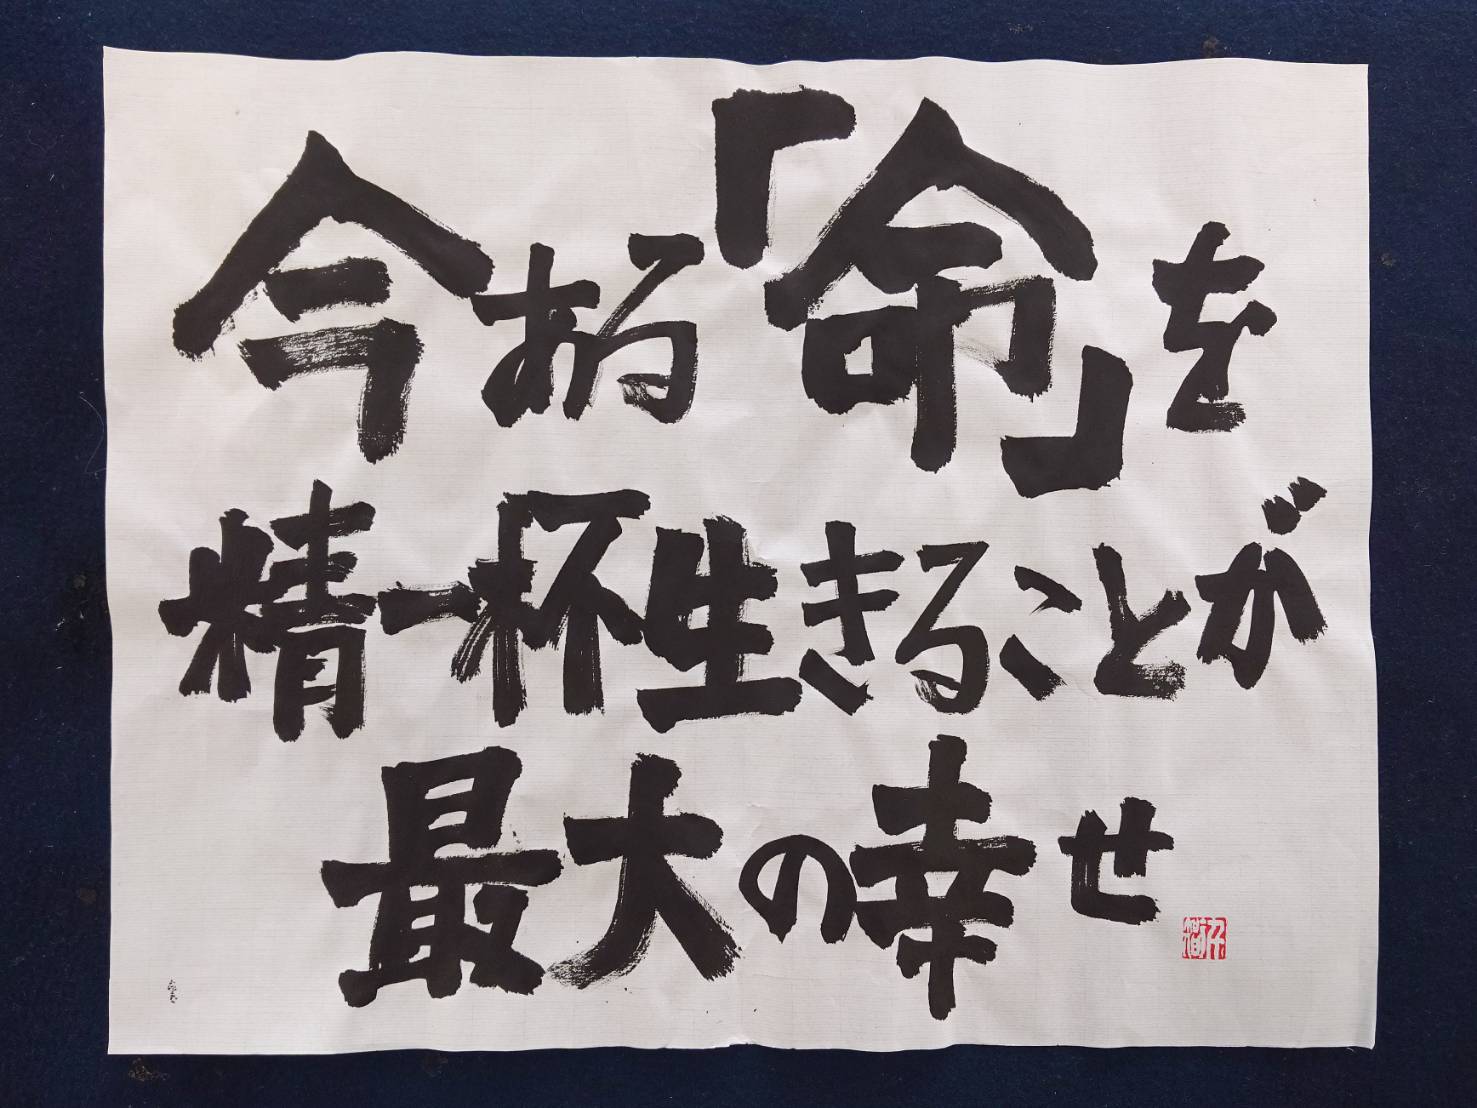 今ある「命」を
精一杯生きることが
最大の幸せ